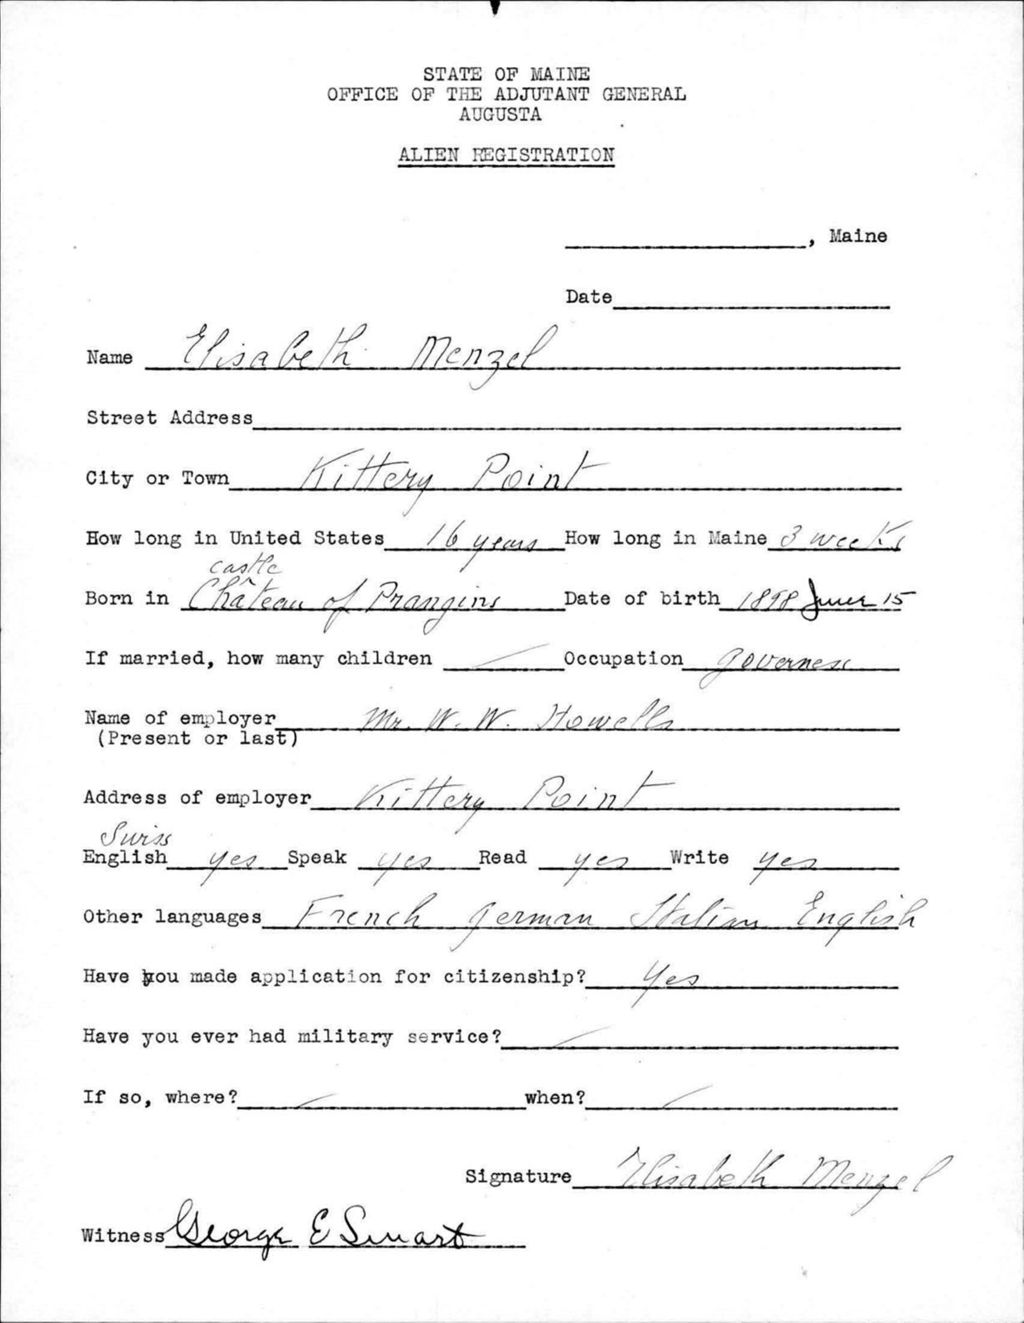 STATE OF MAINE
OFFICE OF THE ADJUTANT GENERAL
AUGUSTA
ALIEN REGISTRATION
, Maine
Date
Name Elisabeth Menzel
Street Address
City or Town Kittery Point
How long in United States 16 years How long in Maine 3 weeks
castle
Born in Château of Prangins Date of birth 1898 June 15
If married, how many children Occupation governess
Name of employer Mr. W. W. Howells
(Present or last)
Address of employer Kittery Point
Swiss
English yes Speak yes Read yes Write yes
Other languages French German Italian English
Have you made application for citizenship? Yes
Have you ever had military service?
If so, where? when?
Signature Elisabeth Menzel
Witness George E Smart